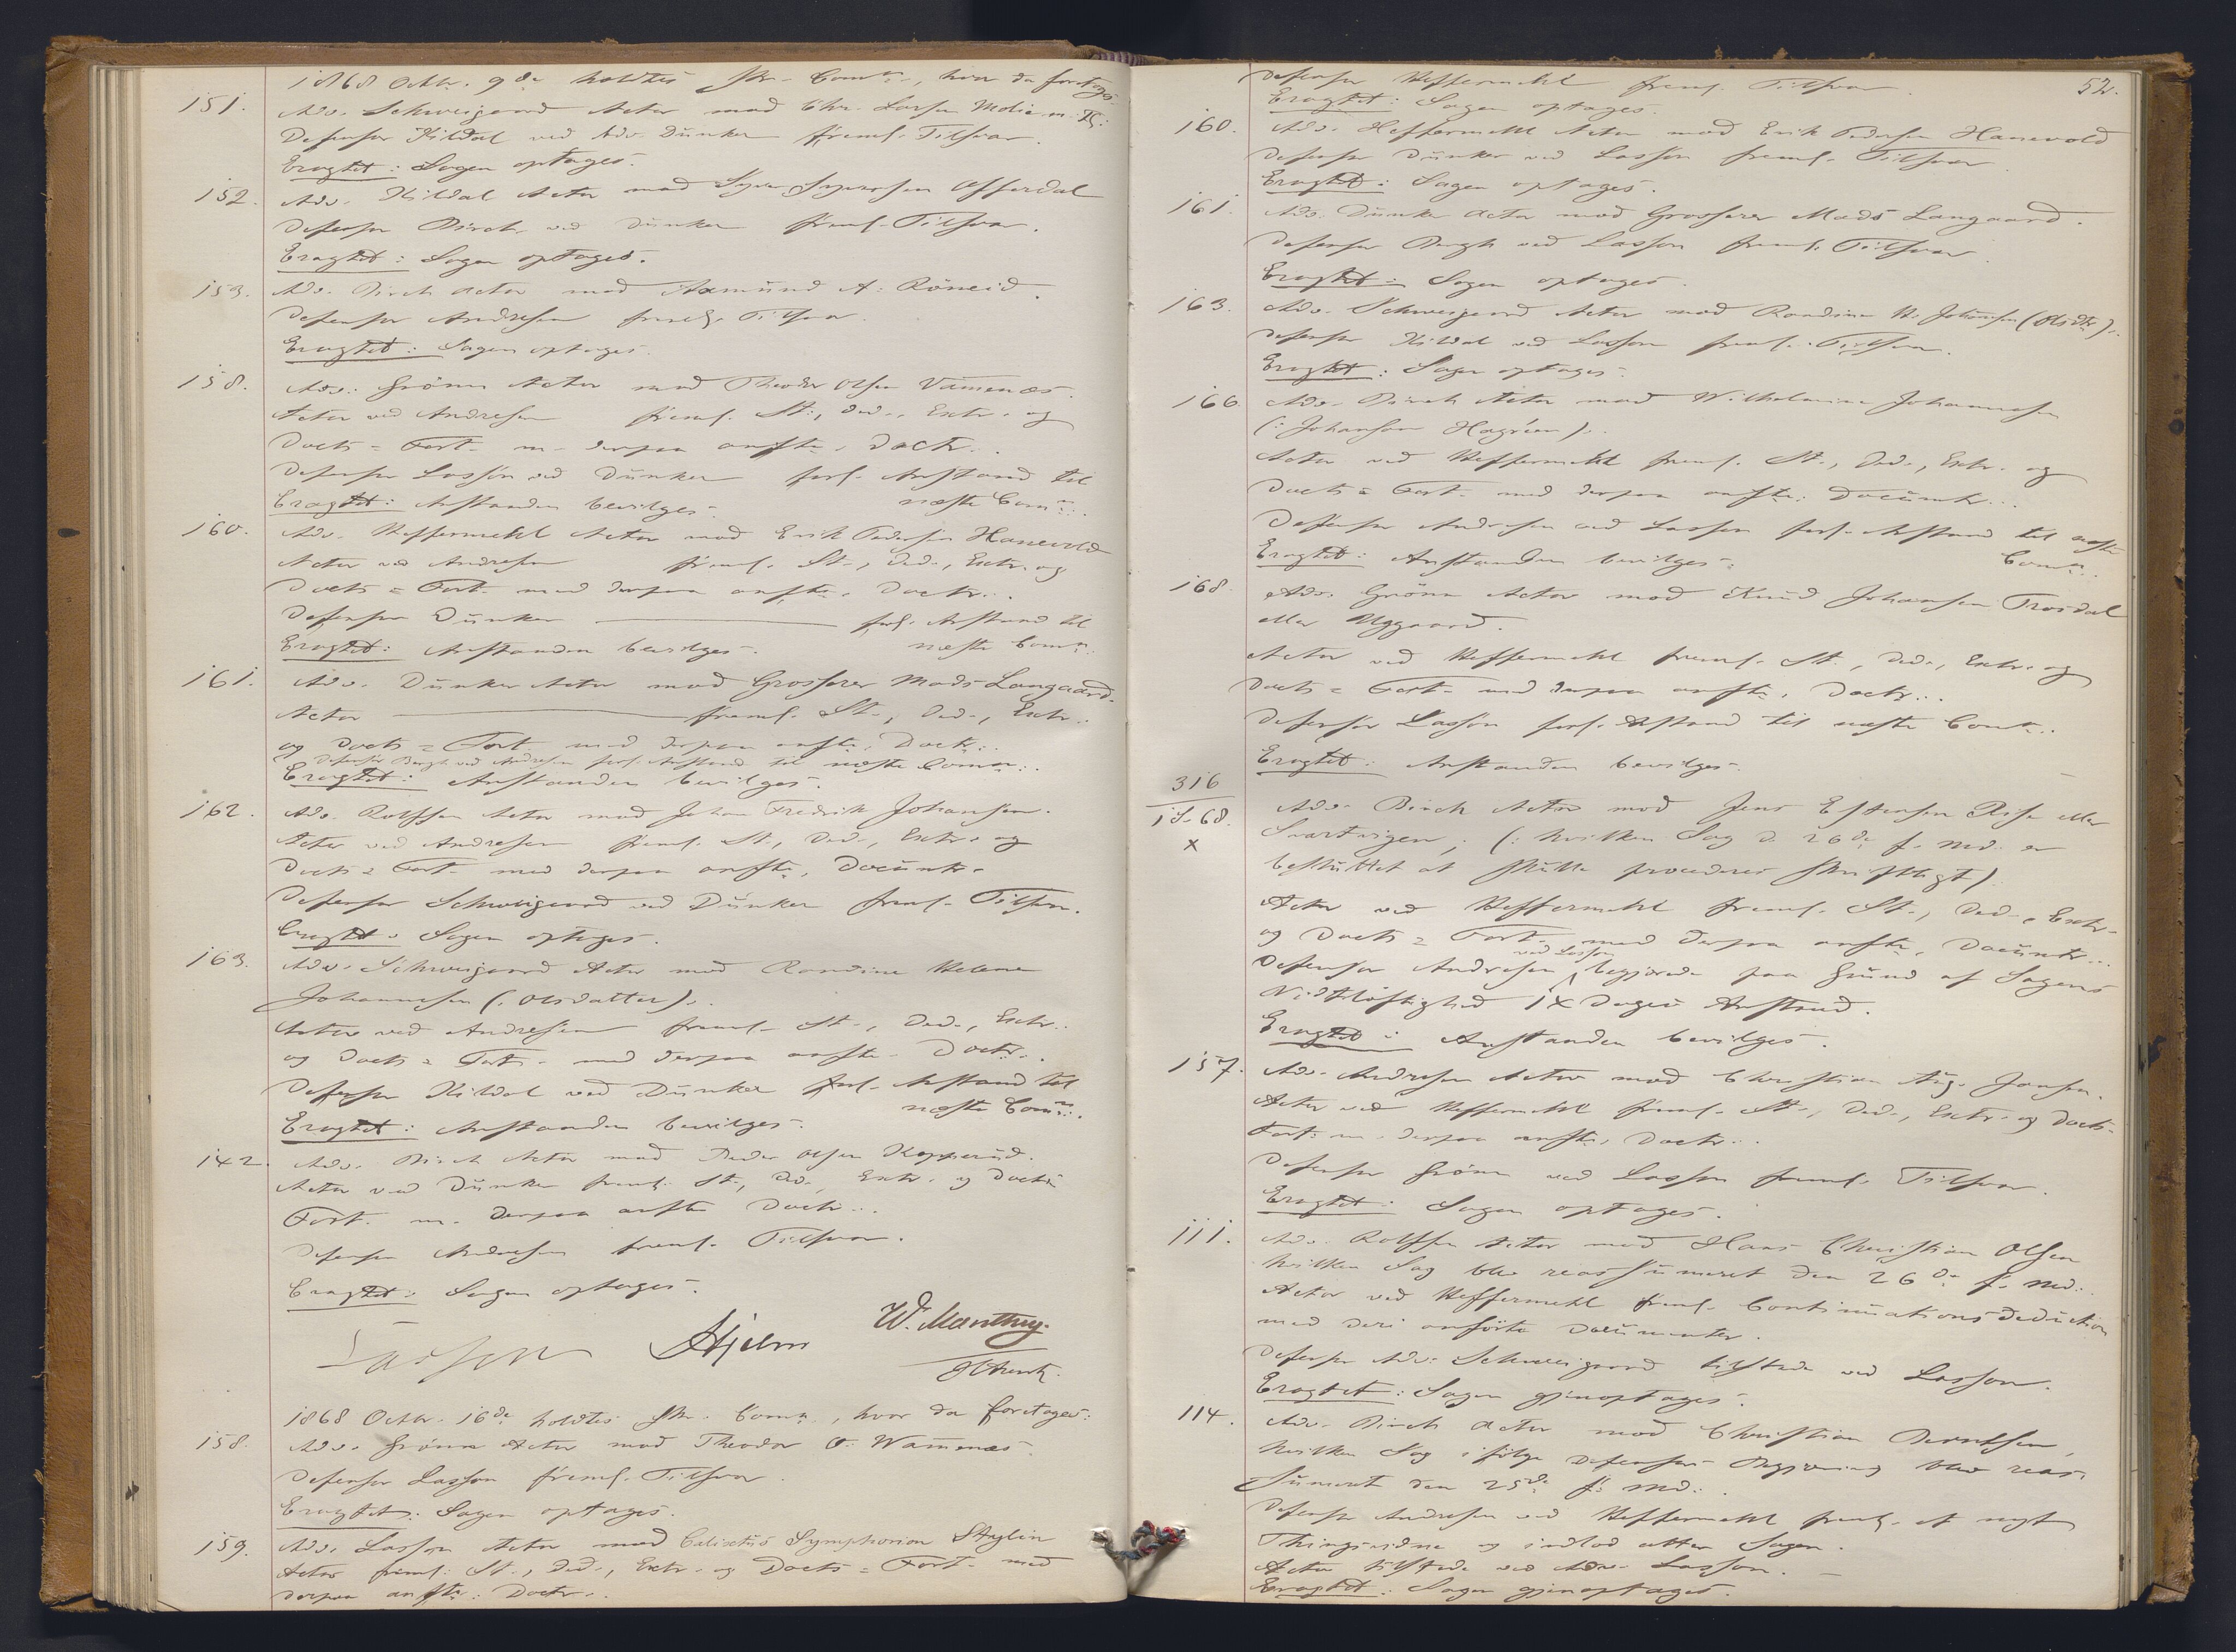 1868 Octbr. 9de holdtes skr. Comn., hvor da foretoges
151. Adv. Schweigaard Actor mod Chr. Larsen Molie m. fl:
Defensor Kildal ved Adv. Dunker freml. Tilsvar.
Eragtet: Sagen optages.
152. Adv. Kildal Actor mod Syver Syversen Offerdal
Defensor Birch ved Dunker freml. Tilsvar.
Eragtet: Sagen optages.
153. Adv. Birch Actor mod Asmund A. Röneid.
Defensor Andresen freml. Tilsvar.
Eragtet: Sagen optages.
158. Adv. Grönn Actor mod Theodor Olsen Vamnæs.
Actor ved Andresen freml. St., Ded., Extr. og
Docts = Fort. m. derpaa anfte. Doctr..
Defensor Lasson ved Dunker forl. Anstand til
næste Comn..
Eragtet: Anstanden bevilges.
160. Adv. Heffermehl Actor mod Erik Pedersen Hanevold
Actor ved Andresen freml. St., Ded., Extr. og
Docts = Fort. med derpaa anfte. Doctr..
Defensor Dunker forl. Anstand til
næste Comn..
Eragtet: Anstanden bevilges.
161. Adv. Dunker Actor mod Grosserer Mads Langaard.
Actor freml. St., Ded., Extr..
og Docts = Fort. med derpaa anfte. Doctr..
Defensor Bergh ved Andresen forl. Anstand til næste Comn..
Eragtet: Anstanden bevilges.
162. Adv. Rolfsen Actor mod Johan Fredrik Johansen.
Actor ved Andresen freml. St., Ded., Extr. og
Docts = Fort. med derpaa anfte. Documtr.
Defensor Schweigaard ved Dunker freml. Tilsvar.
Eragtet: Sagen optages.
163. Adv. Schweigaard Actor mod Randine Helene
Johannesen (: Olsdatter).
Actor ved Andresen freml. St., Ded., Extr..
og Docts = Fort. med derpaa anfte. Doctr..
Defensor Kildal ved Dunker forl. Anstand til
næste Comn..
Eragtet: Anstanden bevilges.
142. Adv. Birch Actor mod Peder Olsen Kopperud.
Actor ved Dunker freml. St., Ded., Extr. og Docts=
Fort. m. derpaa anfte Doctr..
Defensor Andresen freml. Tilsvar.
Eragtet: Sagen optages.
Lasson Hjelm W. Manthey
1868 Octbr. 16de holdtes skr. Comn., hvor da foretoges:
158. Adv. Grönn Actor mod Theodor O. Wamnæs.
Defensor Lasson freml. Tilsvar.
Eragtet: Sagen optages.
159. Adv. Lasson Actor mod Calixtus Symphorian Stylin
Actor freml. St., Ded., Extr. og Docts = Fort. med
derpaa anfte. Doctr..
52.
Defensor Heffermehl freml. Tilsvar.
Eragtet: Sagen optages.
160. Adv. Heffermehl Actor mod Erik Pedersen Hanevold
Defensor Dunker ved Lasson freml. Tilsvar
Eragtet: Sagen optages.
161. Adv. Dunker Actor mod Grosserer Mads Langaard.
Defensor Bergh ved Lasson freml. Tilsvar.
Eragtet: Sagen optages.
163. Adv. Schweigaard Actor mod Randine H. Johannesen (Olsdtr).
Defensor Kildal ved Lasson freml. Tilsvar.
Eragtet: Sagen optages.
166. Adv. Birch Actor mod Wilhelmine Johannesen
(: Johanson Hagréen).
Actor ved Heffermehl freml. St., Ded., Extr. og
Docts = Fort. med derpaa anfte. Documtr...
Defensor Andresen ved Lasson forl. Anstand til næste
Comn..
Eragtet: Anstanden bevilges.
168. Adv. Grönn Actor mod Knud Johansen Trosdal
eller Uggaard.
Actor ved Heffermehl freml. St., Ded., Extr. og
Docts = Fort. med derpaa anfte. Doctr...
Defensor Lasson forl. Anstand til næste Comn..
Eragtet: Anstanden bevilges.
316
1 S. 68.
x
Adv. Birch Actor mod Jens Estensen Risse eller
Svartvigen, (: hvilken Sag d. 26de f. Md. er
besluttet at skulle procederes skriftligt)
Actor ved Heffermehl freml. St., Ded., Extr.
og Docts = Fort. med derpaa anfte. Documtr...
Defensor Andresen ved Lasson begjærede paa Grund af Sagens
Vidtløftighed 14 Dages Anstand.
Eragtet: Anstanden bevilges.
157. Adv. Andresen Actor mod Christian Aug. Jansen.
Actor ved Heffermehl freml. St., Ded., Extr. og Docts=
Fort. m. derpaa anfte. Doctr..
Defensor Grönn ved Lasson freml. Tilsvar.
Eragtet: Sagen optages.
111. Adv. Rolfsen Actor mod Hans Christian Olsen
hvilken Sag blev reassumeret den 26de f. Md.
Actor ved Heffermehl freml. Continuationsdeduction
med deri anførte Documenter.
Defensor Adv. Schweigaard tilstede ved Lasson.
Eragtet: Sagen gjenoptages.
114. Adv. Birch Actor mod Christian Berntsen,
hvilken Sag ifølge Defensors Begjæring blev reas-
sumeret den 25de f. Md.
Defensor Andresen ved Heffermehl freml. et nyt
Thingsvidne og indlod atter Sagen.
Actor tilstede ved Adv. Lasson.
Eragtet: Sagen gjenoptages.